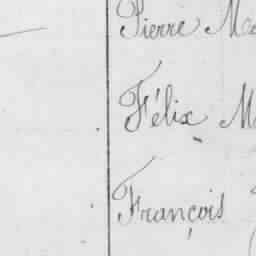 Pierre
Félix
François